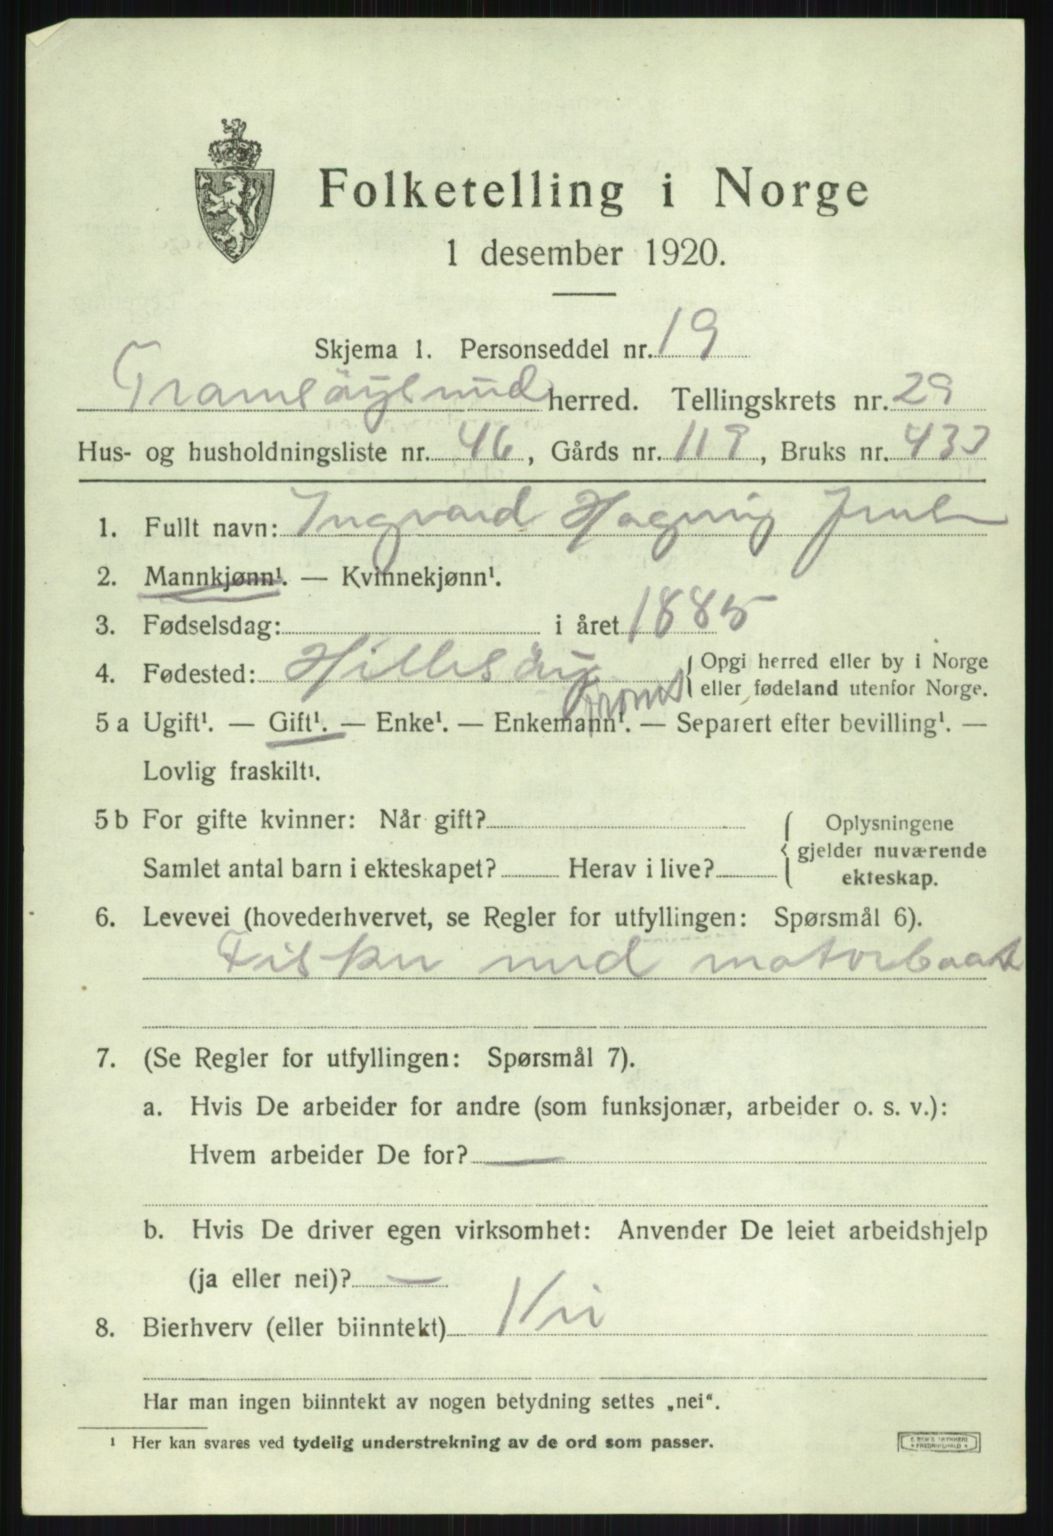 Folketelling i Norge
1 desember 1920.
Skjema 1. Personseddel nr. 19
Tromsöysund herred. Tellingskrets nr. 29
Hus- og husholdningsliste nr. 46, Gårds nr. 119, Bruks nr. 433
1. Fullt navn: Ingvard
2. Mannkjønn¹. — Kvinnekjønn¹.
3. Fødselsdag: i året 1885
4. Fødested: Hillesöy { Opgi herred eller by i Norge
eller fødeland utenfor Norge.
Troms
5 a Ugift¹. — Gift¹. — Enke¹. — Enkemann¹. — Separert efter bevilling¹. —
Lovlig fraskilt¹.
5 b For gifte kvinner: Når gift? { Oplysningene
gjelder nuværende
ekteskap.
Samlet antal barn i ekteskapet? Herav i live?
6. Levevei (hovederhvervet, se Regler for utfyllingen: Spørsmål 6).
Fisker med motorbaat
7. (Se Regler for utfyllingen: Spørsmål 7).
a. Hvis De arbeider for andre (som funksjonær, arbeider o. s. v.):
Hvem arbeider De for? —
b. Hvis De driver egen virksomhet: Anvender De leiet arbeidshjelp
(ja eller nei)? —
8. Bierhverv (eller biinntekt) Nei
Har man ingen biinntekt av nogen betydning settes „nei".
¹ Her kan svares ved tydelig understrekning av de ord som passer.